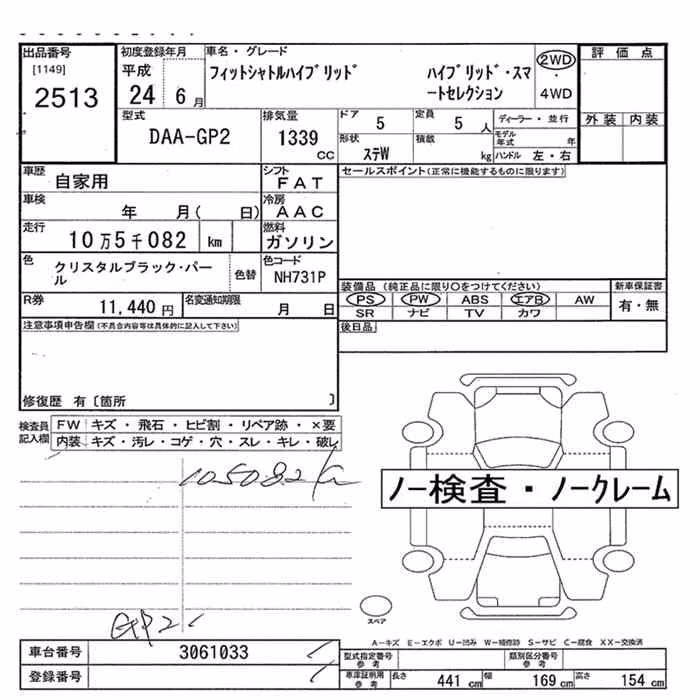 出品番号
[1149]
2513
初度登録年月
平成
24 6月
車名・グレード
フィットシャトルハイブリッド
ハイブリッド・スマ
ートセレクション
2WD
4WD
評価点
外装 内装
型式
DAA-GP2
排気量
1339
CC
ドア
5
定員
5人
ディーラー・並行
モデル
年式 年
形状
ステW
積載
kg
ハンドル 左・右
車歴
自家用
シフト
FAT
セールスポイント(正常に機能するものに限ります)
車検
年 月( 日)
冷房
AAC
走行
10万5千082 km
燃料
ガソリン
色
クリスタルブラック・パー
ル
色替
色コード
NH731P
装備品(純正品に限り○をつけてください)
新車保証書
PS PW ABS エアB AW
有・無
SR ナビ TV カワ
R券
11,440円
名変通知期限
月 日
後日品
注意事項申告欄(不具合内容等は具体的に記入して下さい)
修復歴 有〔箇所 〕
検査員
記入欄
FW キズ・飛石・ヒビ割・リペア跡・×要
内装 キズ・汚レ・コゲ・穴・スレ・キレ・破レ
105082
ノー検査・ノークレーム
スペア
GP2
A-キズ E-エクボ U-凹み W-補修跡 S-サビ C-腐食 XX-交換済
車台番号
3061033
登録番号
型式指定番号
参考
類別区分番号
参考
車庫証明用
参考
長さ 441cm 幅 169cm 高さ 154cm